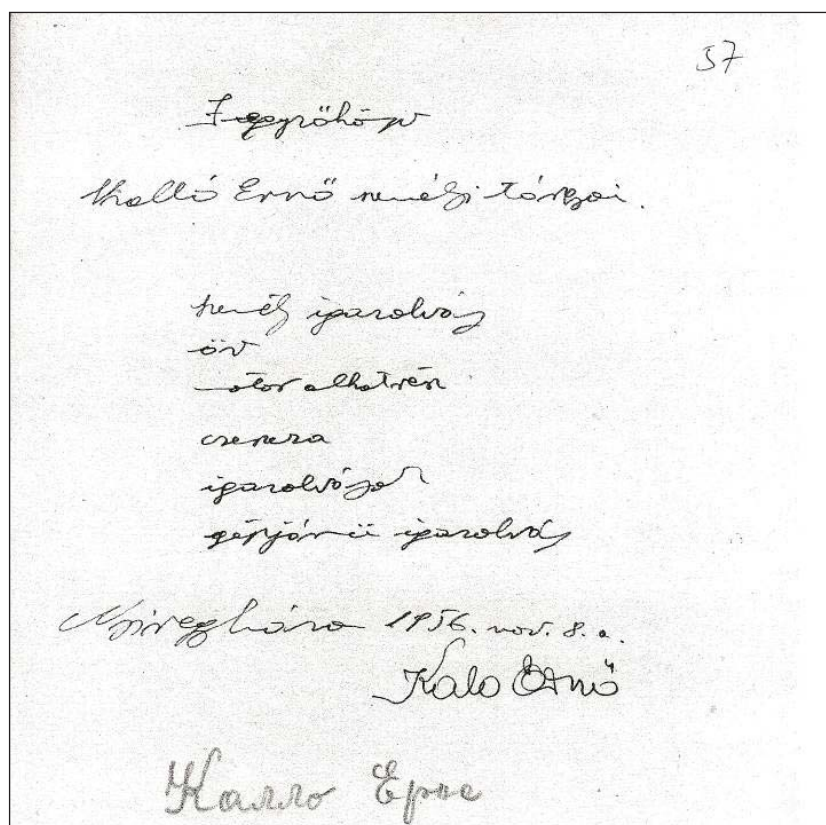 37
Jegyzőkönyv
Kalló Ernő személyi tárgyai.
személyi igazolvány
öv
motor alkatrész
igazolványok
gépjármű igazolvány
Nyíregyháza 1956. nov. 8.a.
Kalo Ernő
Калло Ерне